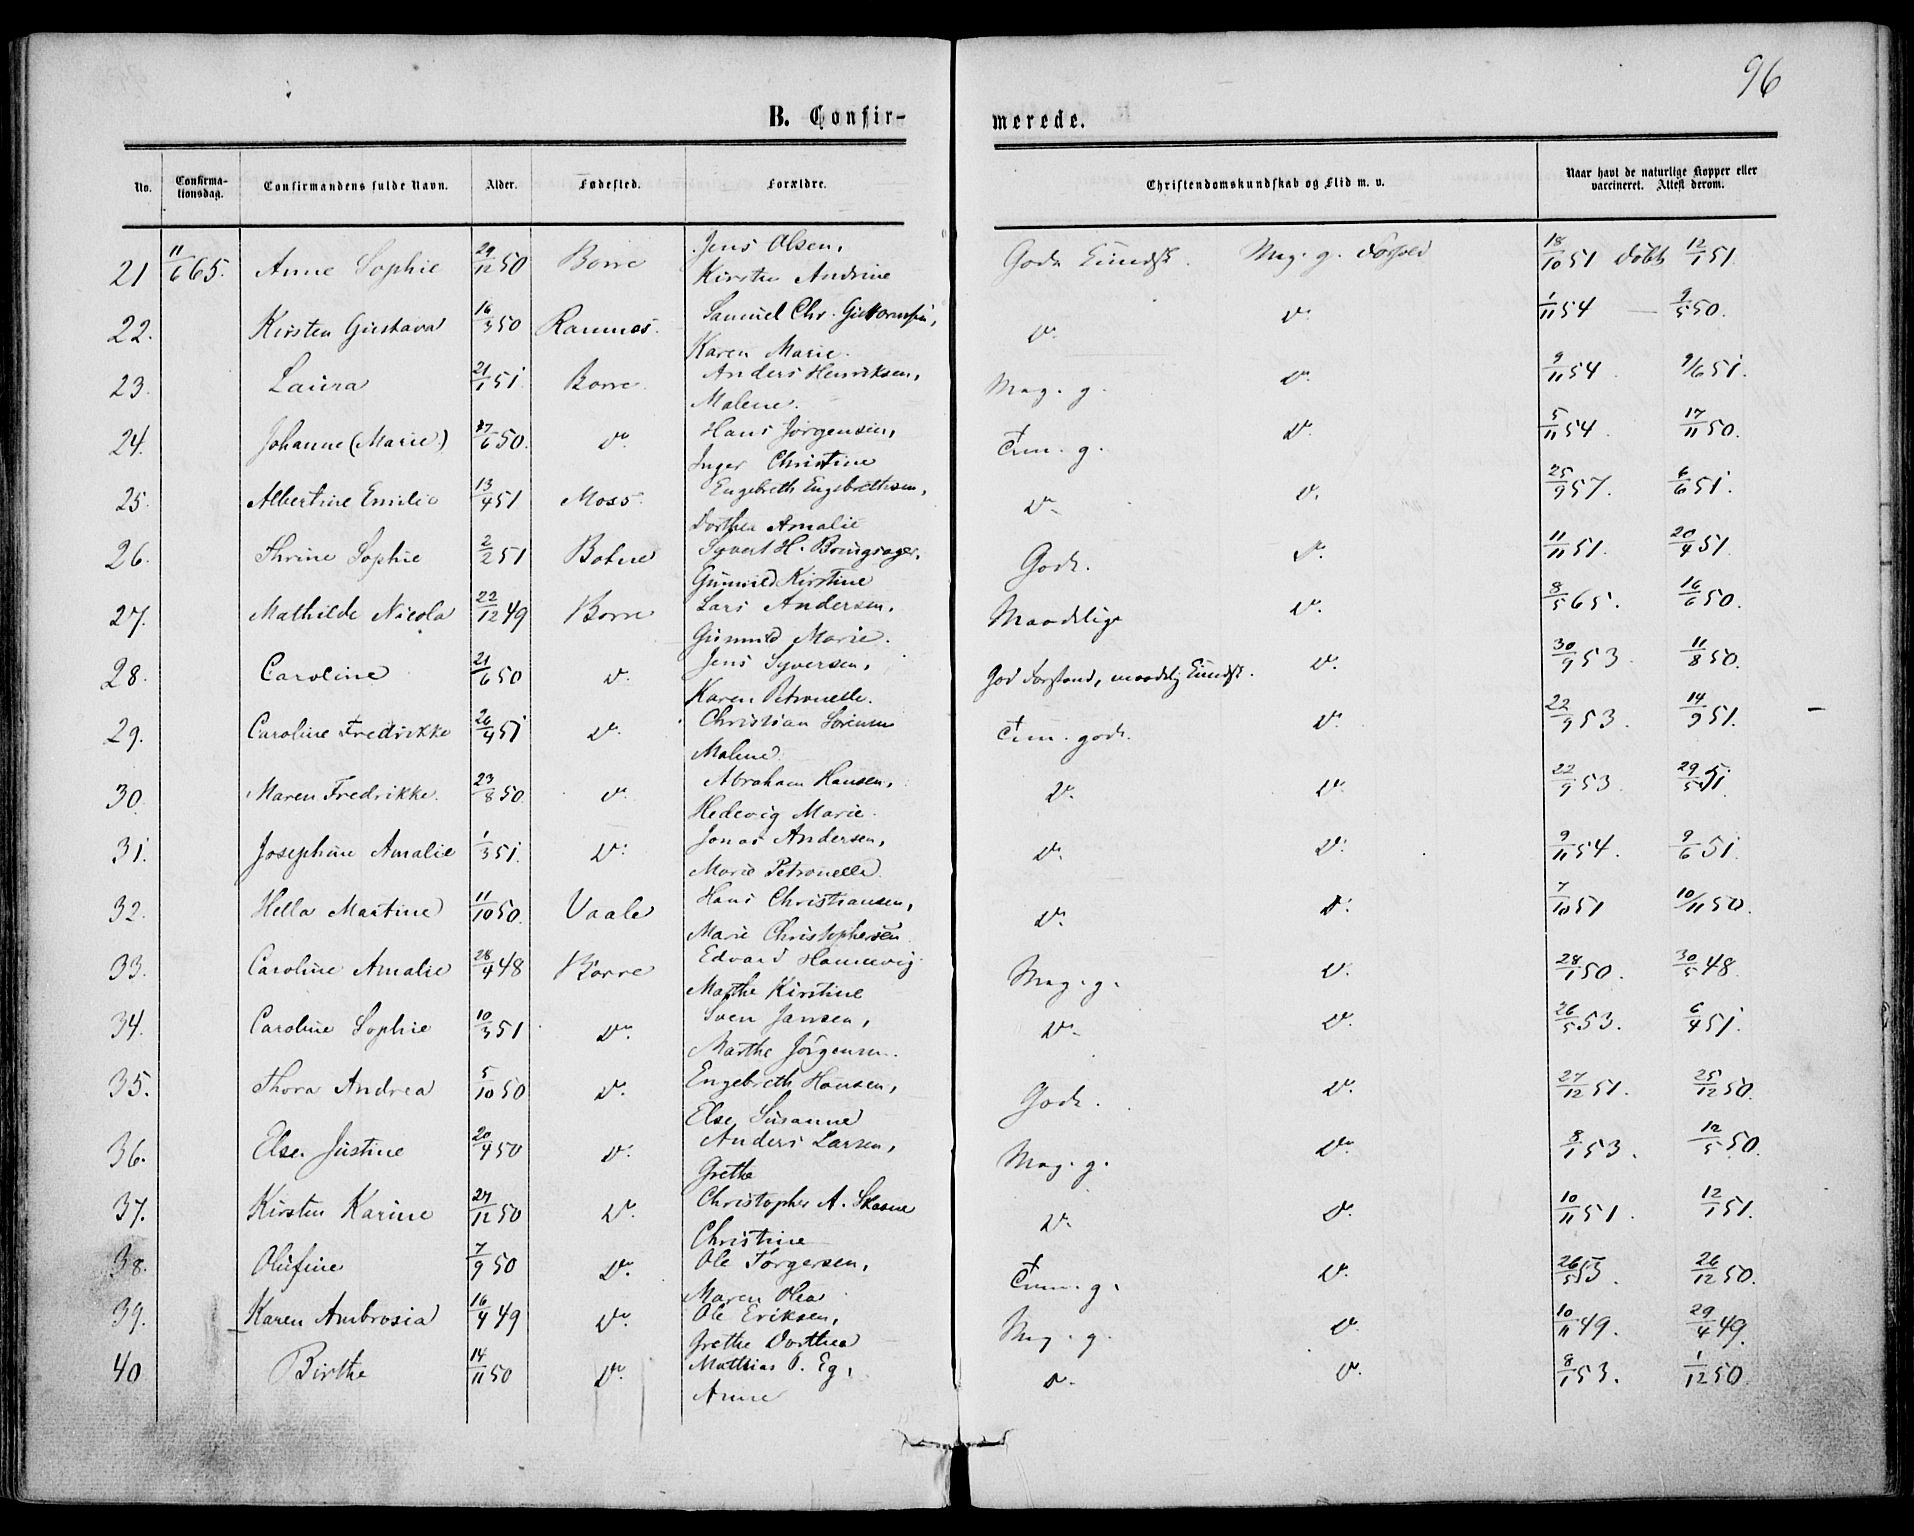 96
B. Confir-
merede.
No. Confirma-tionsdag. Confirmandens fulde Navn. Alder. Fødested. Forældre. Christendomskundskab og Flid m. v. Naar havt de naturlige Kopper eller vaccineret. Attest derom.
21 11/6 65. Anne Sophie 29/12 50 Borre Jens Olsen, Kirstine Andrine Godt Kundsk. Meg. g. Forhold 18/10 51 døbt 12/1 51.
22. Kirsten Gustava 16/3 50 Ramnes. Samuel Chr. Karen Marie. Do. Do. 1/11 54 — 9/5 50.
23. Laura 21/1 51 Borre. Anders Henriksen, Malene. Meg. g. Do. 9/11 54 9/6 51.
24. Johanne (Marie) 17/6 50. Do. Hans Jørgensen, Inger Christine Tem. g. Do. 5/11 54. 17/11 50.
25. Albertine Emilie 13/4 51 Moss. Engebreth Engebrethsen, Dorthea Amalie Do. Do. 25/9 57. 6/6 51.
26. Thrine Sophie 2/2 51 Botne Syvert H. Gunnild Kirstine Godt. Do. 11/11 51. 20/4 51
27. Mathilde Nicola 22/12 49 Borre Lars Andersen, Gunnild Marie. Maadelige Do. 8/5 65. 16/6 50.
28. Caroline 21/6 50 Do. Jens Syversen, Karen Petronelle. God Forstand, maadelig Kundsk. Do. 30/9 53. 11/8 50.
29. Caroline Fredrikke 26/4 51 Do. Christian Sørensen Malene. Tem. godt. Do. 22/9 53. 14/9 51.
30. Maren Fredrikke. 23/8 50 Do. Abraham Hansen, Hedevig Marie. Do. Do. 22/9 53 29/5 51.
31. Josephine Amalie 1/3 51. Do. Jonas Andersen, Marie Petronelle. Do. Do. 9/11 54. 9/6 51.
32. Hella Martine 11/10 50 Vaale Hans Christiansen, Marie Christophersen Do. Do. 7/10 51 10/11 50.
33. Caroline Amalie 28/4 48 Borre Edvard Hannevig Marthe Kirstine Meg. g. Do. 28/1 50. 30/5 48.
34. Caroline Sophie 10/3 51 Do. Sven Jansen, Marthe Jørgensen. Do. Do. 26/5 53. 6/4 51.
35. Thora Andrea 5/10 50 Do. Engebreth Hansen, Else Susanne Godt. Do. 27/12 51. 25/12 50.
36. Else Justine 20/4 50 Do. Anders Larsen, Grethe Meg. g. Do. 8/1 53. 12/5 50.
37. Kirsten Karine 27/12 50 Do. Christopher A. Skaane Christine Do. Do. 10/11 51. 12/1 51.
38. Olufine 7/9 50 Do. Ole Torgersen, Maren Olea Tem. g. Do. 26/5 53. 26/12 50.
39. Karen Ambrosia 16/4 49 Do. Ole Eriksen, Grethe Dorthea Meg. g. Do. 10/11 49. 29/4 49.
40 Birthe 14/11 50 Do. Mathias O. Eg, Anne Do. Do. 8/1 53. 1/12 50.